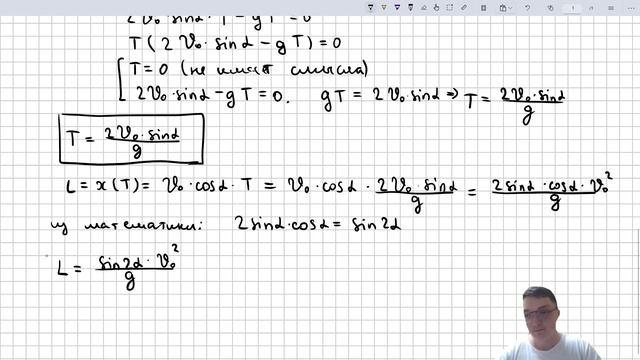 2V₀·sinα·T − gT² = 0
T(2V₀·sinα − gT) = 0
T = 0 (не имеет смысла)
2V₀·sinα − gT = 0. gT = 2V₀·sinα => T = 2V₀·sinα / g
T = 2V₀·sinα / g
L = x(T) = V₀·cosα·T = V₀·cosα · 2V₀·sinα / g = 2sinα·cosα·V₀² / g
из математики: 2sinα·cosα = sin2α
L = sin2α·V₀² / g